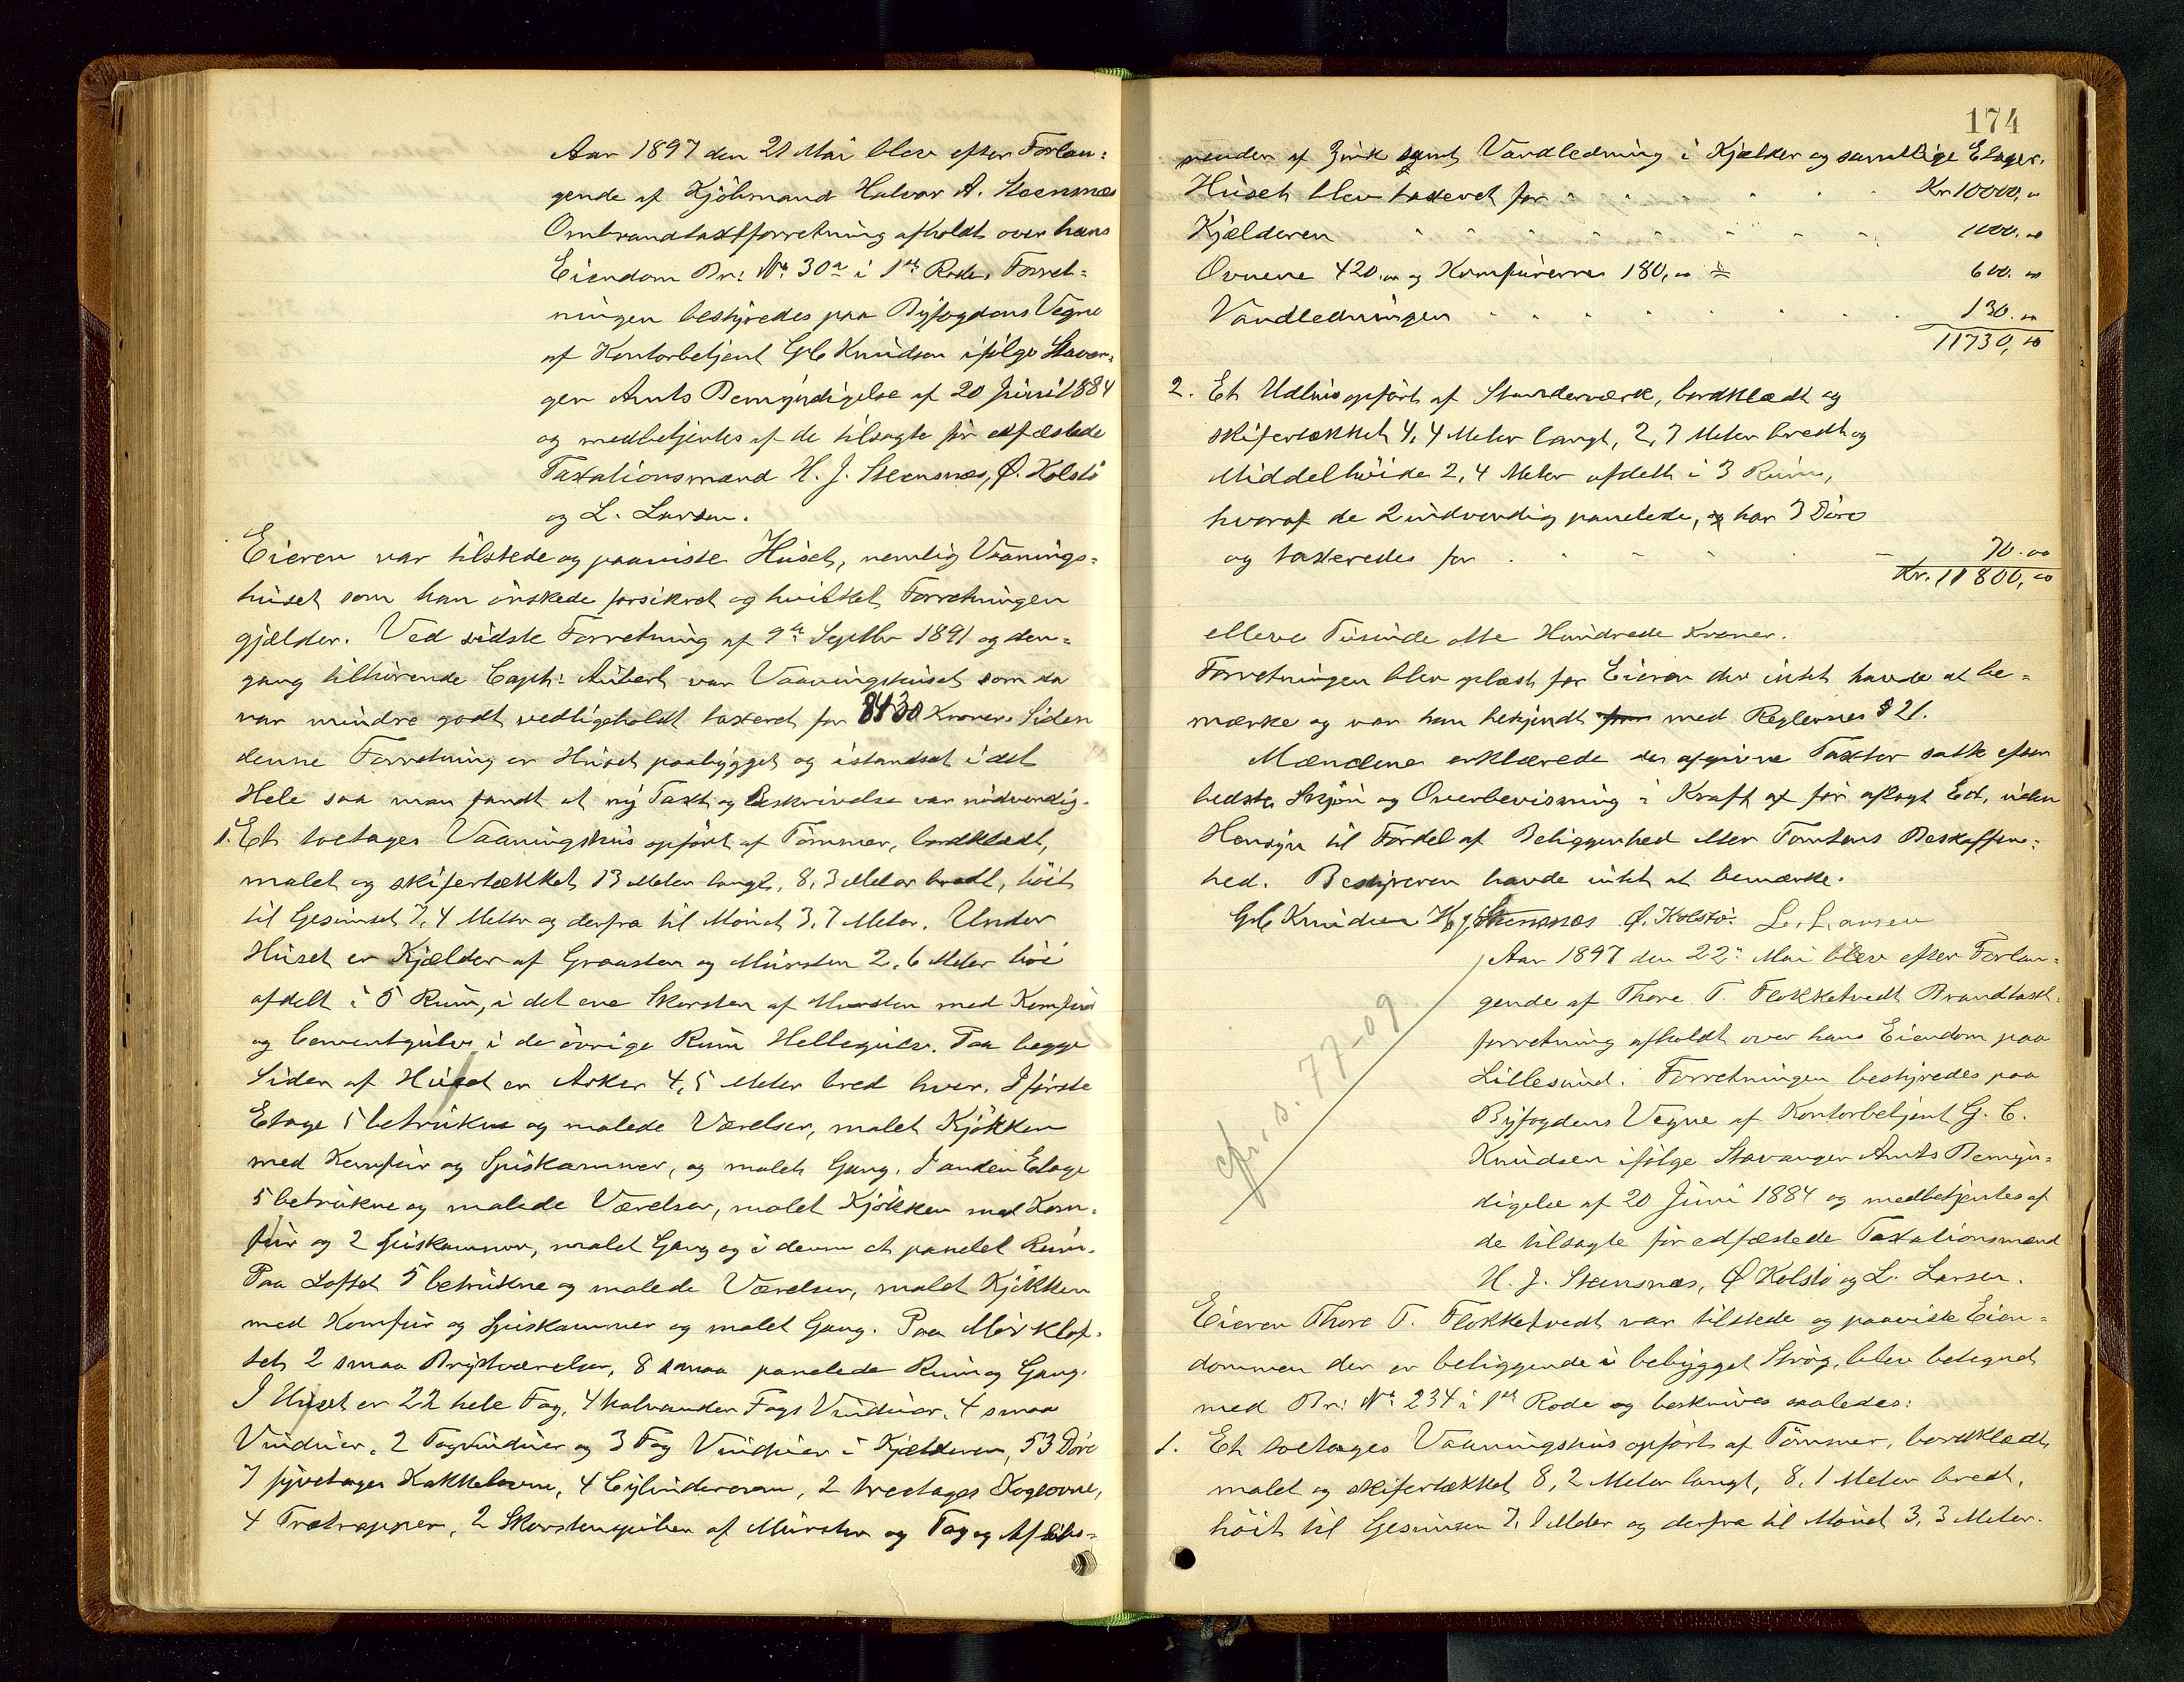 Aar 1897 den 21 Mai blev efter Forlan=
gende af Kjöbmand Halvor A. Steensnæs
Ombrandtaxtforretning afholdt over hans
Eiendom Br: № 30a i 1ste Rode. Forret=
ningen bestyredes paa Byfogdens Vegne
af Kontorbetjent G C Knudsen ifölge Stavan=
ger Amts Bemyndigelse af 20 Juni 1884
og medbetjentes af de tilsagte för edfæstede
Taxationsmænd H. J. Steensnæs, Ø. Kolstö
og L. Larsen.
Eieren var tilstede og paaviste Huset, nemlig Vaanings=
huset som han önskede forsikret og hvilket Forretningen
gjælder. Ved sidste Forretning af 9de Septbr 1891 og den=
gang tilhörende Capt: Aubert var Vaaningshuset som da
var mindre godt vedligeholdt taxeret for 8430 Kroner. Siden
denne Forretning er Huset paabygget og istandsat i det
Hele saa man fandt at ny Taxt og Beskrivelse var nödvendig.
1. Et toetages Vaaningshus opfört af Tömmer, bordklædt,
malet og skifertækket 13 Meter langt, 8,3 Meter bredt, höit
til Gesimset 7,4 Meter og derfra til Mönet 3,7 Meter. Under
Huset er Kjælder af Graasten og Mursten 2,6 Meter höi
afdelt i 5 Rum, i det ene Skorsten af Mursten med Komfur
og Cementgulv i de övrige Rum Hellegulv. Paa begge
Sider af Huset er Arker 4,5 Meter bred hver. I förste
Etage 5 betrukne og malede Værelser, malet Kjökken
med Komfur og Spiskammer, og malet Gang. I anden Etage
5 betrukne og malede Værelser, malet Kjökken med Kom=
fur og 2 Spiskammer, malet Gang og i denne et panelet Rum.
Paa Loftet 5 betrukne og malede Værelser, malet Kjökken
med Komfur og Spiskammer og malet Gang. Paa Mörklof=
tet 2 smaa Brystværelser, 8 smaa panelede Rum og Gang.
I Huset er 22 hele Fag, 4 halvanden Fags Vinduer, 4 smaa
Vinduer, 2 Tagvinduer og 3 Fag Vinduer i Kjælderen, 53 Döre
7 fyretages Kakkelovne, 4 Cylinderovne, 2 treetages Kogeovne,
4 Trætrapper, 2 Skorstenspiber af Mursten og Tag og Aflöbs=
174
render af Zink samt Vandledning i Kjælder og samtlige Etager.
Huset blev taxeret for Kr. 10000,00
Kjælderen 1000.00
Ovnene 420.00 og Komfurerne 180,00 = 600.00
Vandledningen 130.00
11730,00
2. Et Udhus opfört af Stænderværk, bordklædt og
skifertækket 4,4 Meter langt, 2,7 Meter bredt og
Middelhöide 2,4 Meter afdelt i 3 Rum,
hvoraf de 2 indvendig panelede, og har 3 Döre
og taxeredes for 70.00
Kr. 11800,00
elleve Tusinde otte Hundrede Kroner.
Forretningen blev oplæst for Eieren der intet havde at be=
mærke og var han bekjendt med Reglernes § 21.
Mændene erklærede de afgivne Taxter satte efter
bedste Skjön og Overbevisning i Kraft af för aflagt Ed, uden
Hensyn til Fordel af Beliggenhed eller Tomtens Beskaffen=
hed. Bestyreren havde intet at bemærke.
G C Knudsen H J Steensnæs Ø. Kolstö. L. Larsen
Aar 1897 den 22de Mai blev efter Forlan=
gende af Thore T. Flokketvedt Brandtaxt=
forretning afholdt over hans Eiendom paa
Lillesund. Forretningen bestyredes paa
Byfogdens Vegne af Kontorbetjent G. C.
Knudsen ifölge Stavanger Amts Bemyn=
digelse af 20 Juni 1884 og medbetjentes af
de tilsagte för edfæstede Taxationsmænd
H. J. Steensnæs, Ø Kolstö og L. Larsen.
cfr. s. 77-09
Eieren Thore T. Flokketvedt var tilstede og paaviste Eien=
dommen der er beliggende i bebygget Strög, blev betegnet
med Br: № 234 i 1ste Rode og beskrives saaledes:
1. Et toetages Vaaningshus opfört af Tömmer, bordklædt,
malet og skifertækket 8,2 Meter langt, 8,1 Meter bredt,
höit til Gesimsen 7,1 Meter og derfra til Mönet 3,3 Meter.